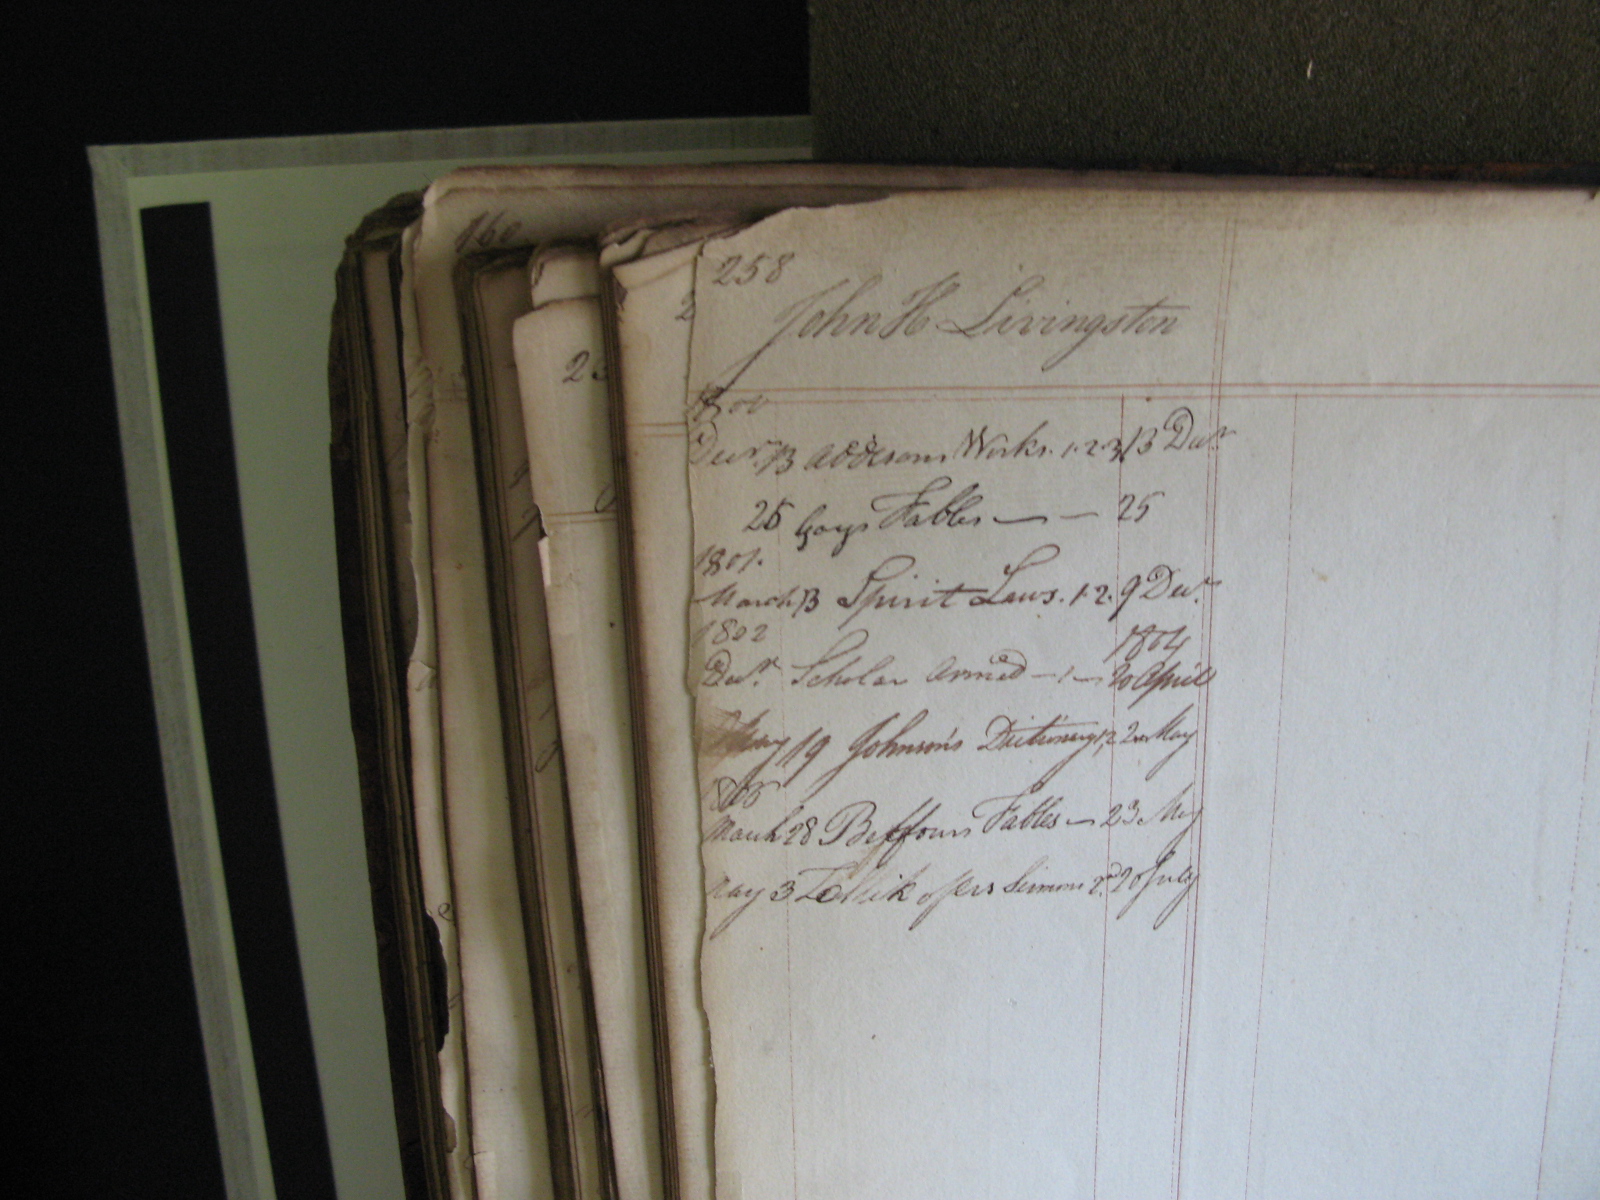 160
258
2
John H Livingston
23
1800
Decr. 13 Addisons Works. 1.2.3 13 Decr.
26 Gays Fables — — 25
1801.
March 13 Spirit Laws. 1.2. 9 Decr.
1802
1804
Decr. Scholar Armed — 1 — 20 April
May 19 Johnson's Dictionary 1,2 May
1805
March 28 Fables — 23 May
May 3 Sermons 2d 20 July